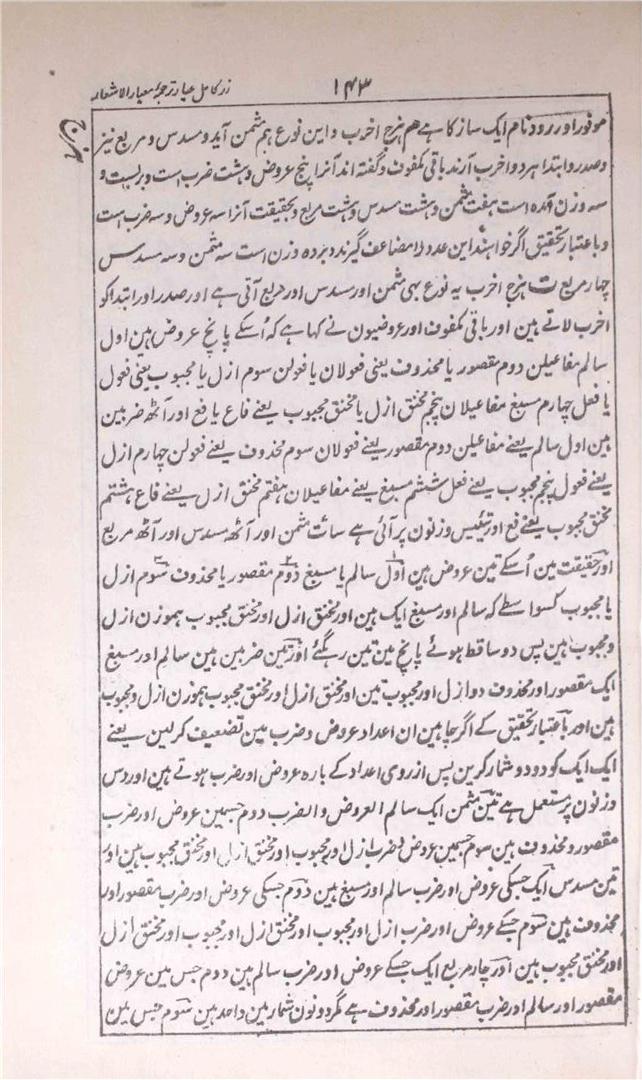 ۱۴۳
زر کامل عیار ترجمۂ معیار الاشعار
ہزج
موفور اور رود نام ایک ساز کا ہے ھم ہزج اخرب و این نوع ہم مثمن آید و مسدس و مربع نیز
و صدر و ابتدا ہر دو اخرب آرند باقی مکفوف و گفتہ اند آنرا پنج عروض و ہشت ضرب است و بر بیست و
سہ وزن آمدہ است ہفت مثمن و ہشت مسدس و ہشت مربع و بحقیقت آنرا سہ عروض و سہ ضرب است
و باعتبار تحقیق اگر خواہند این عدد را مضاعف گیرند و بر دہ وزن است سہ مثمن و سہ مسدس
چہار مربع ت ہزج اخرب یہ نوع بھی مثمن اور مسدس اور مربع آتی ہے اور صدر اور ابتدا کو
اخرب لاتے ہین اور باقی مکفوف اور عروضیون نے کہا ہے کہ اُسکے پانچ عروض ہین اول
سالم مفاعیلن دوم مقصور یا محذوف یعنی فعولان یا فعولن سوم ازل یا مجبوب یعنی فعول
یا فعل چہارم مسبغ مفاعیلان پنجم مخنق ازل یا مخنق مجبوب یعنے فاع یا فع اور آٹھ ضربین
ہین اول سالم یعنے مفاعیلن دوم مقصور یعنے فعولان سوم محذوف یعنے فعولن چہارم ازل
یعنے فعول پنجم مجبوب یعنے فعل ششم مسبغ یعنے مفاعیلان ہفتم مخنق ازل یعنے فاع ہشتم
مخنق مجبوب یعنے فع اور تیئیس وزنون پر آئی ہے سات مثمن اور آٹھ مسدس اور آٹھ مربع
اور حقیقت مین اُسکے تین عروض ہین اول سالم یا مسبغ دوم مقصور یا محذوف سوم ازل
یا مجبوب کسواسطے کہ سالم اور مسبغ ایک ہین اور مخنق ازل اور مخنق مجبوب ہموزن ازل
و مجبوب ہین پس دو ساقط ہوئے پانچ مین تین رہگئے اور تین ضربین ہین سالم اور مسبغ
ایک مقصور اور محذوف دو ازل اور مجبوب تین اور مخنق ازل اور مخنق مجبوب ہموزن ازل و مجبوب
ہین اور باعتبار تحقیق کے اگر چاہین ان اعداد عروض و ضرب مین تضعیف کرلین یعنے
ایک ایک کو دو دو شمار کرین پس از روی اعداد کے بارہ عروض اور ضرب ہوتے ہین اور دس
وزنون پر مستعمل ہے تین مثمن ایک سالم العروض و الضرب دوم جسمین عروض اور ضرب
مقصور و محذوف ہین سوم جسمین عروض و ضرب ازل اور مجبوب اور مخنق ازل اور مخنق مجبوب ہین اور
تین مسدس ایک جسکی عروض اور ضرب سالم اور مسبغ ہین دوم جسکی عروض اور ضرب مقصور اور
محذوف ہین سوم جسکے عروض اور ضرب ازل اور مجبوب اور مخنق ازل اور مجبوب اور مخنق ازل
اور مخنق مجبوب ہین اور چار مربع ایک جسکے عروض اور ضرب سالم ہین دوم جس مین عروض
مقصور اور سالم اور ضرب مقصور اور محذوف ہے مگر دونون شمار مین واحد ہین سوم جس مین